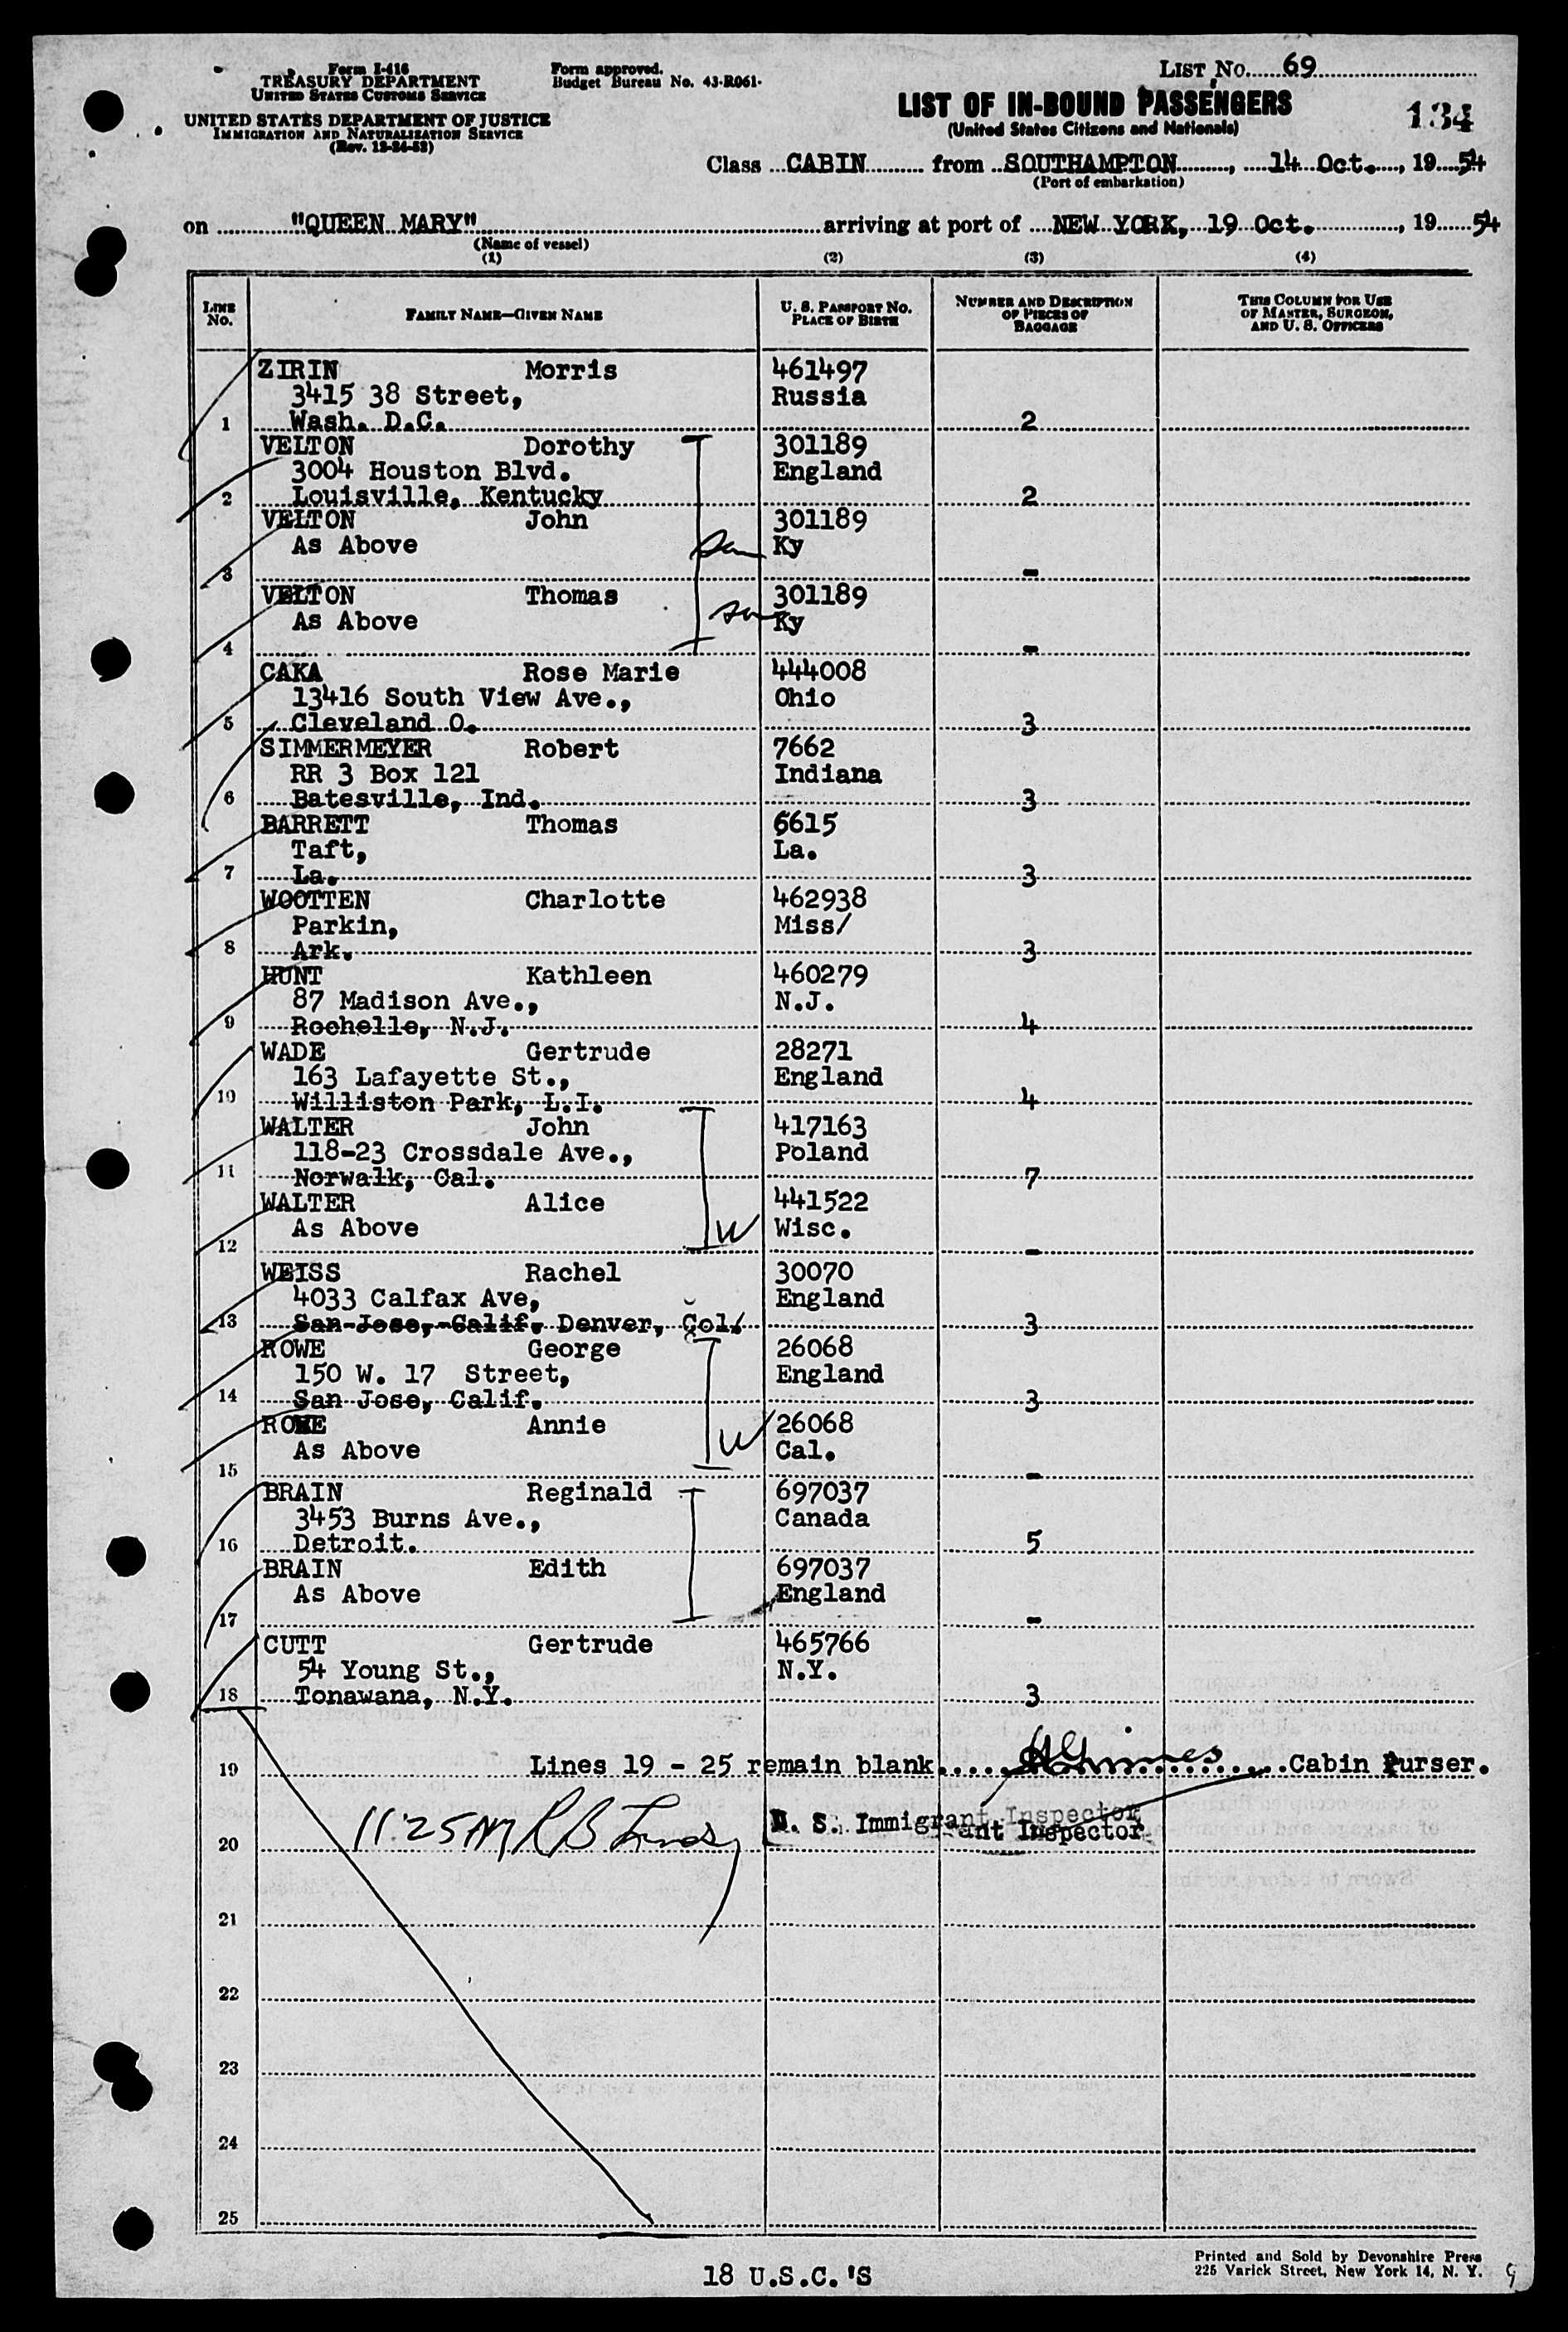 Form I-416
TREASURY DEPARTMENT
UNITED STATES CUSTOMS SERVICE
UNITED STATES DEPARTMENT OF JUSTICE
IMMIGRATION AND NATURALIZATION SERVICE
(Rev. 12-24-52)
Form approved.
Budget Bureau No. 43-R061.
LIST No. 69
LIST OF IN-BOUND PASSENGERS
(United States Citizens and Nationals)
134
Class CABIN from SOUTHAMPTON, 14 Oct., 1954
(Port of embarkation)
on "QUEEN MARY" arriving at port of NEW YORK, 19 Oct., 1954
(Name of vessel)
(1) (2) (3) (4)
LINE No. FAMILY NAME—GIVEN NAME U. S. PASSPORT NO. PLACE OF BIRTH NUMBER AND DESCRIPTION OF PIECES OF BAGGAGE THIS COLUMN FOR USE OF MASTER, SURGEON, AND U. S. OFFICERS
ZIRIN Morris 461497
3415 38 Street, Russia
1 Wash. D.C. 2
VELTON Dorothy 301189
3004 Houston Blvd. England
2 Louisville, Kentucky 2
VELTON John 301189
As Above son Ky
3 -
VELTON Thomas 301189
As Above son Ky
4 -
CAKA Rose Marie 444008
13416 South View Ave., Ohio
5 Cleveland O. 3
SIMMERMEYER Robert 7662
RR 3 Box 121 Indiana
6 Batesville, Ind. 3
BARRETT Thomas 6615
Taft, La.
7 La. 3
WOOTTEN Charlotte 462938
Parkin, Miss/
8 Ark. 3
HUNT Kathleen 460279
87 Madison Ave., N.J.
9 Rochelle, N.J. 4
WADE Gertrude 28271
163 Lafayette St., England
10 Williston Park, L.I. 4
WALTER John 417163
118-23 Crossdale Ave., Poland
11 Norwalk, Cal. 7
WALTER Alice 441522
As Above W Wisc.
12 -
WEISS Rachel 30070
4033 Calfax Ave, England
13 San Jose, Calif. Denver, Col. 3
ROWE George 26068
150 W. 17 Street, England
14 San Jose, Calif. 3
ROWE Annie 26068
As Above W Cal.
15 -
BRAIN Reginald 697037
3453 Burns Ave., Canada
16 Detroit. 5
BRAIN Edith 697037
As Above England
17 -
CUTT Gertrude 465766
54 Young St., N.Y.
18 Tonawana, N.Y. 3
19 Lines 19 - 25 remain blank Cabin Purser.
11:25 AM R B U. S. Immigrant Inspector
ant Inspector
20
21
22
23
24
25
18 U.S.C.'S
Printed and Sold by Devonshire Press
225 Varick Street, New York 14, N. Y.